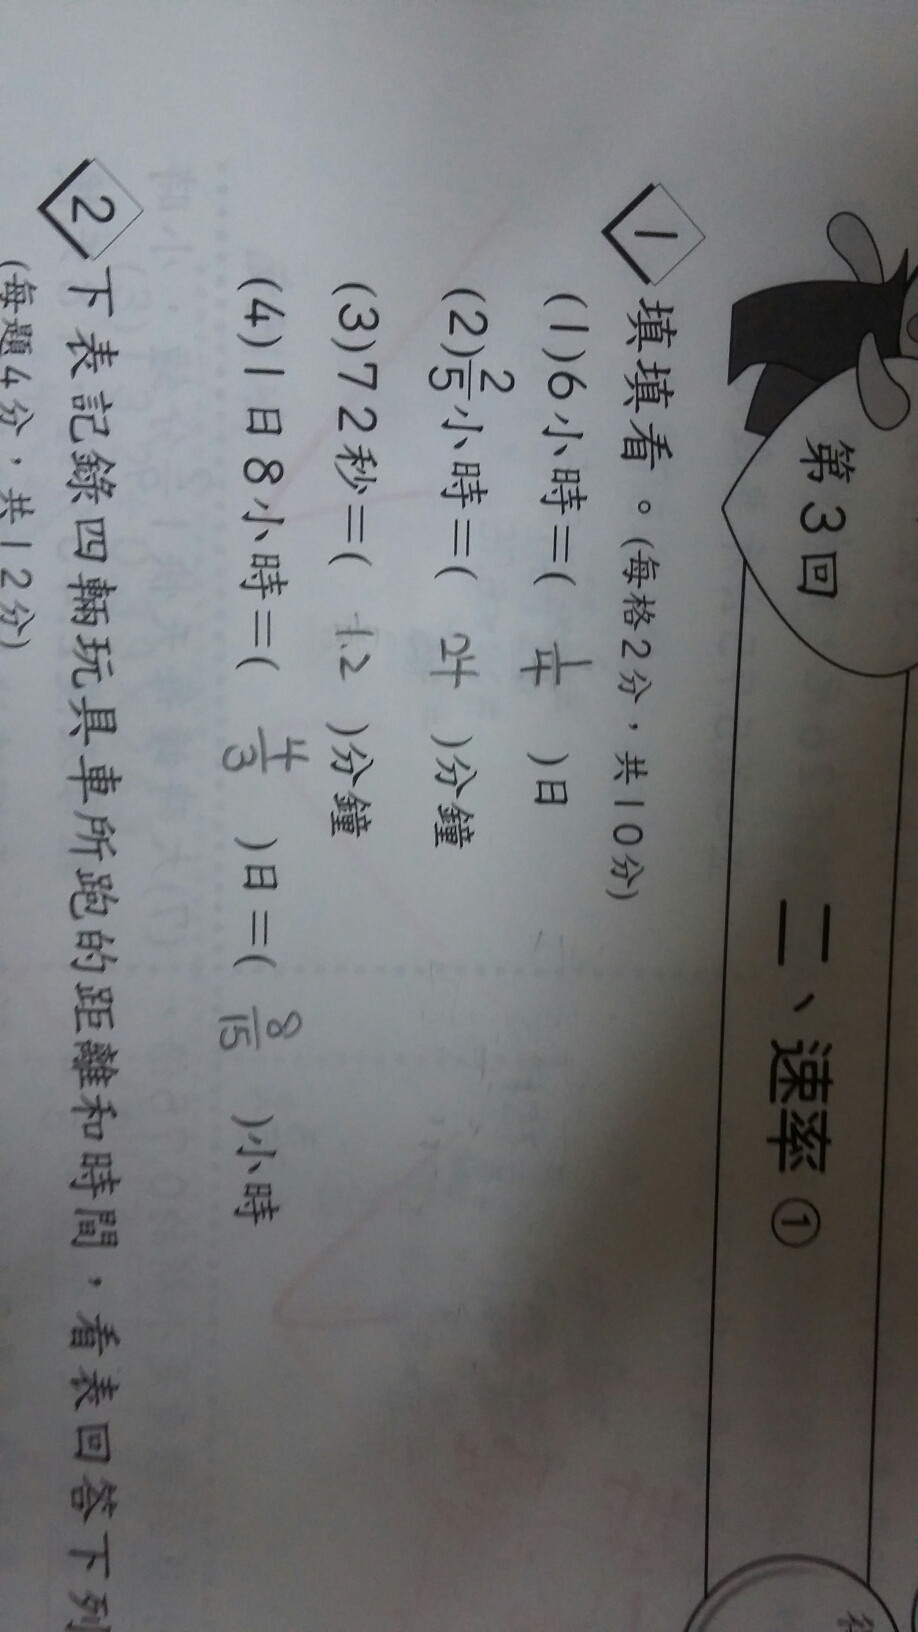 第3回
二、速率①
1 填填看。(每格2分,共10分)
(1)6小時=( 1/4 )日
(2)2/5小時=( 24 )分鐘
(3)72秒=( 1.2 )分鐘
(4)1日8小時=( 4/3 )日=( 8/15 )小時
2 下表記錄四輛玩具車所跑的距離和時間,看表回答下列
(每題4分,共12分)